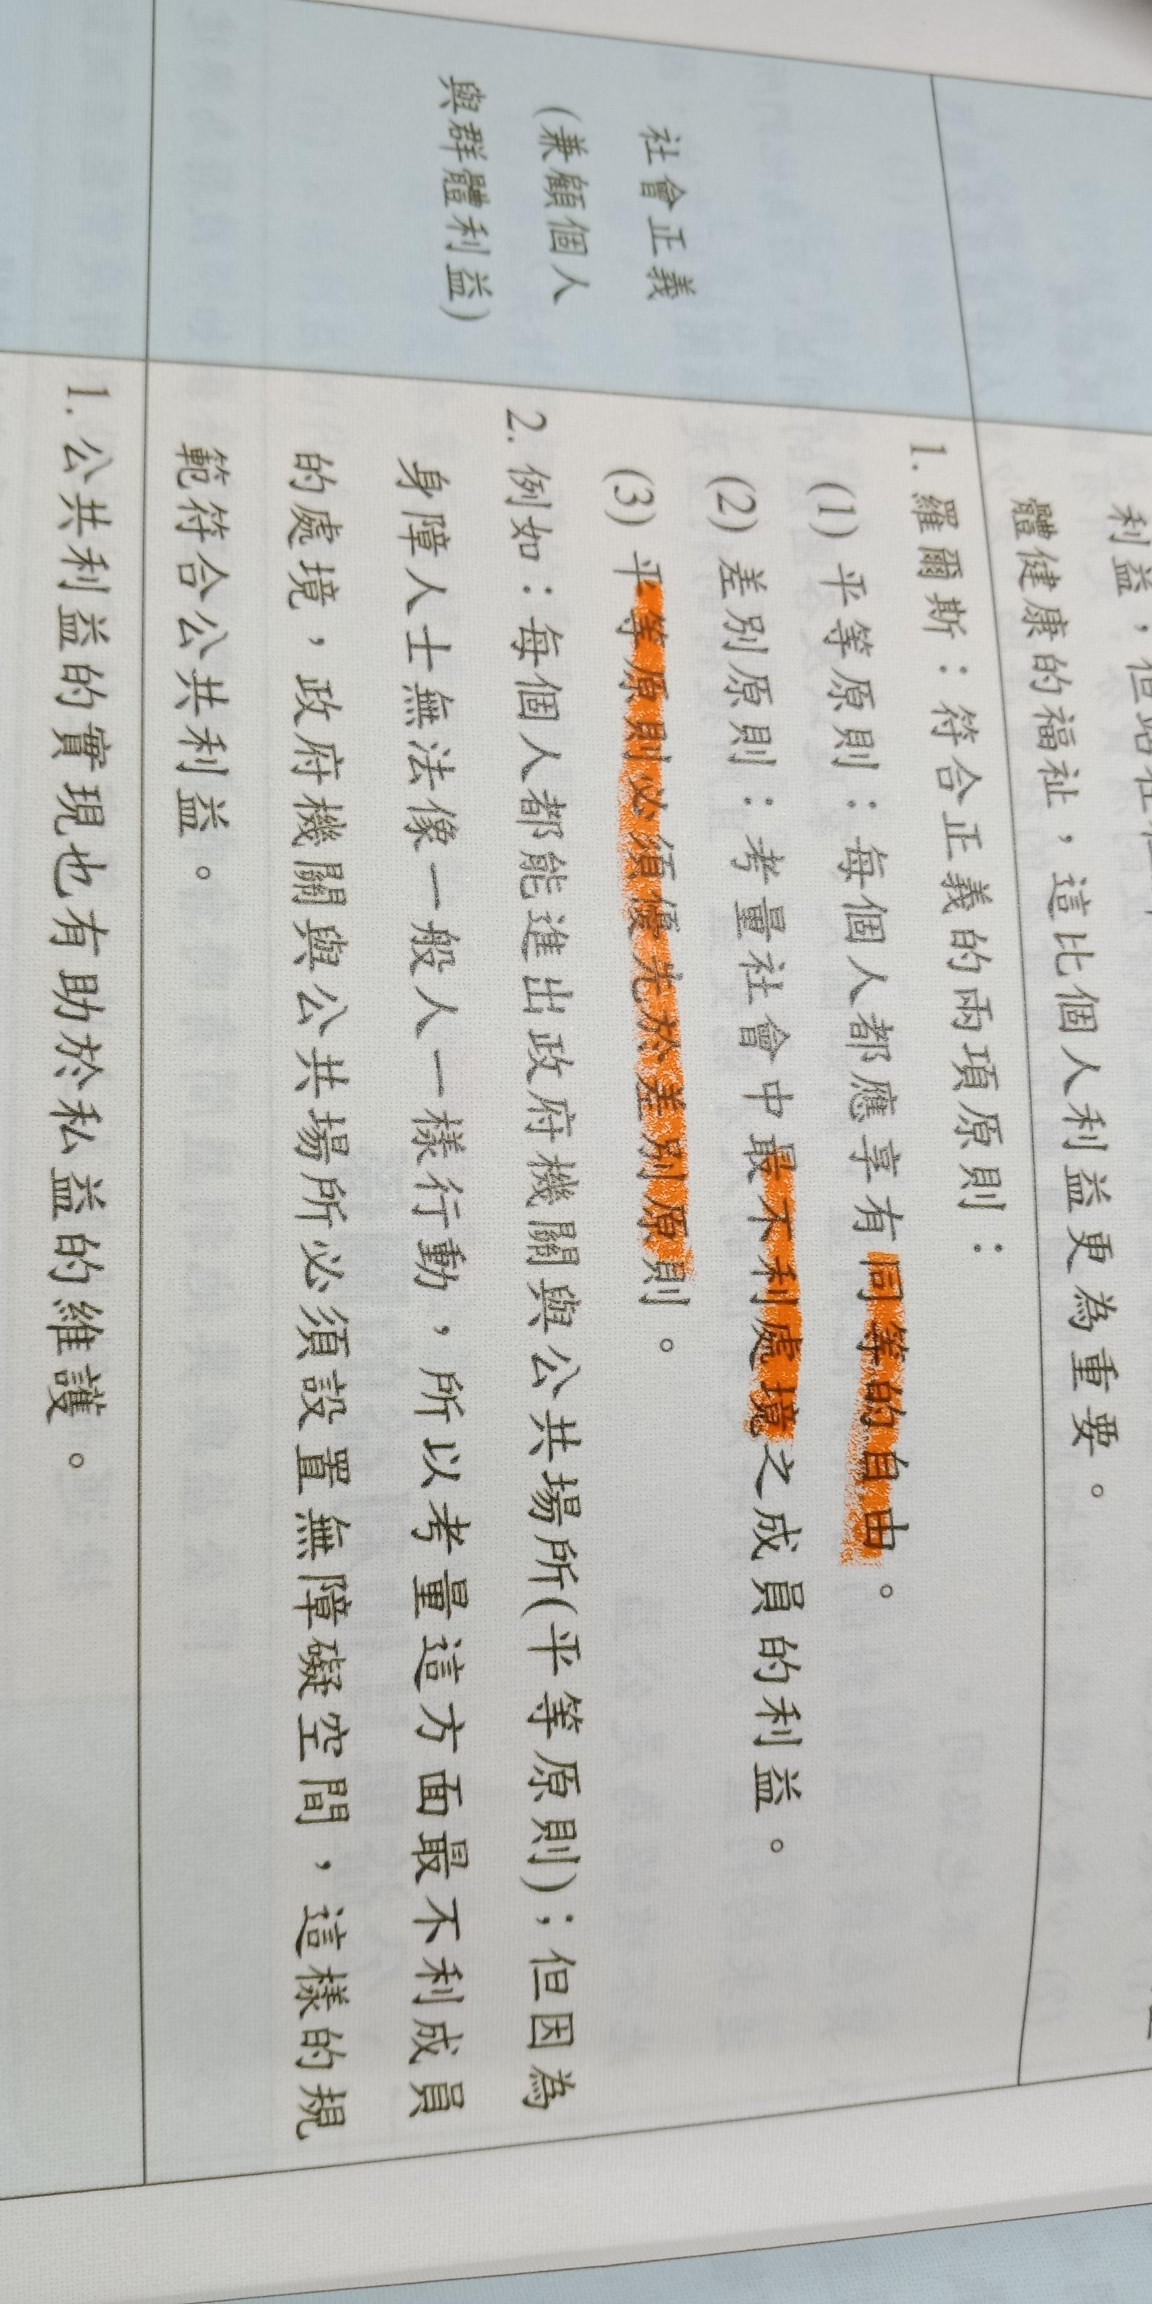 體健康的福祉，這比個人利益更為重要。
社會正義
（兼顧個人
與群體利益）
1. 羅爾斯：符合正義的兩項原則：
(1) 平等原則：每個人都應享有同等的自由。
(2) 差別原則：考量社會中最不利處境之成員的利益。
(3) 平等原則必須優先於差別原則。
2. 例如：每個人都能進出政府機關與公共場所(平等原則)；但因為
身障人士無法像一般人一樣行動，所以考量這方面最不利成員
的處境，政府機關與公共場所必須設置無障礙空間，這樣的規
範符合公共利益。
1. 公共利益的實現也有助於私益的維護。